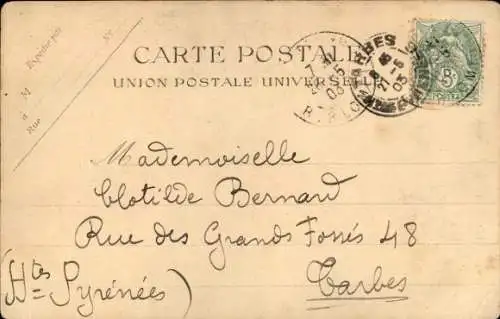 Expédié par
M
à
Rue
N°
CARTE POSTALE
UNION POSTALE UNIVERSELLE
TARBES
Mademoiselle
Clotilde Bernard
Rue des Grands Fossés 48
Tarbes
(Htes Pyrénées)